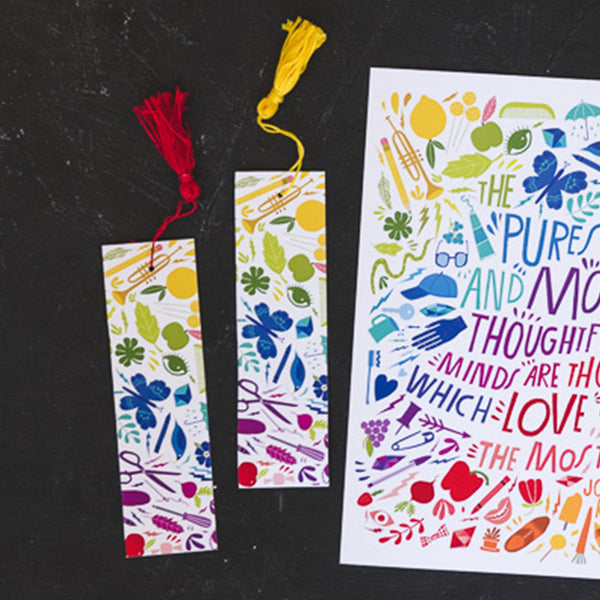 THE
PURES
AND MO
THOUGHTF
MINDS ARE THO
WHICH LOVE
THE MOST
JO